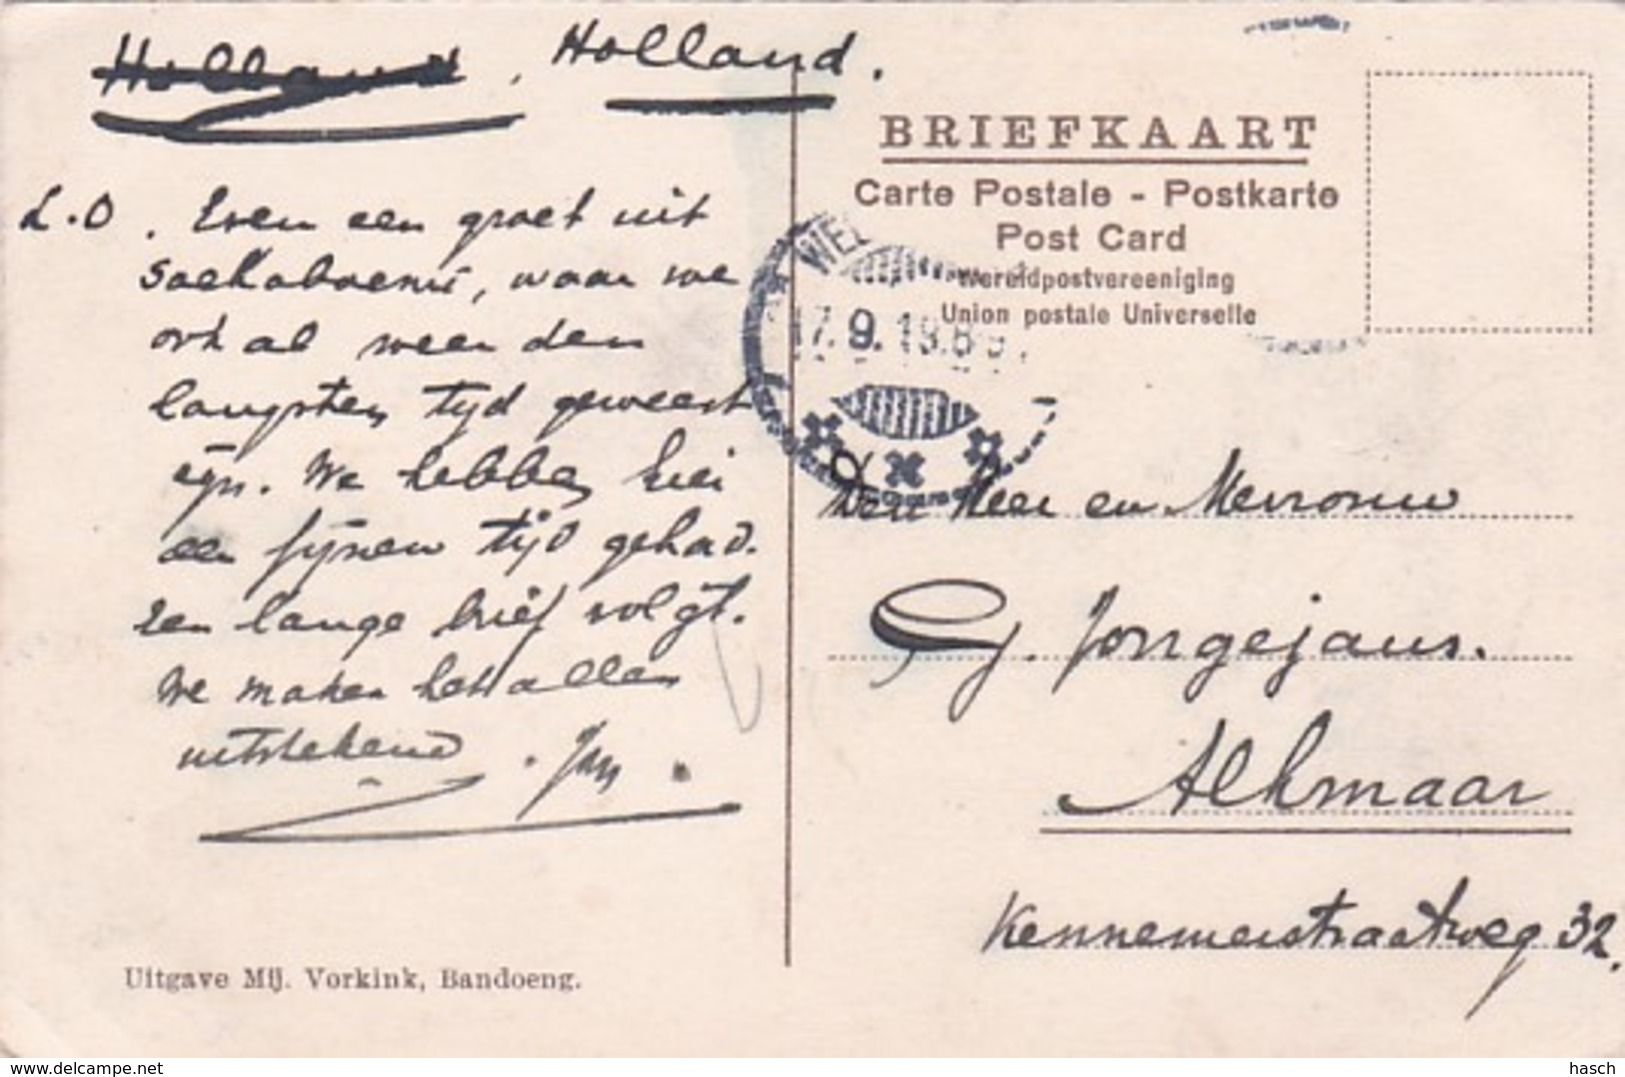 Holland, Holland.
BRIEFKAART
Carte Postale - Postkarte
Post Card
Wereldpostvereeniging
Union postale Universelle
L.O. Even een groet uit
Soekaboemi, waar we
ook al weer den
langsten tijd geweest
zijn. We hebben hier
een fijnen tijd gehad.
Een lange brief volgt.
We maken het allen
uitstekend. Jan.
WEL
17.9.19
Den Heer en Mevrouw
G. Jongejans.
Alkmaar
Kennemerstraatweg 32.
Uitgave Mij. Vorkink, Bandoeng.
www.delcampe.net
hasch